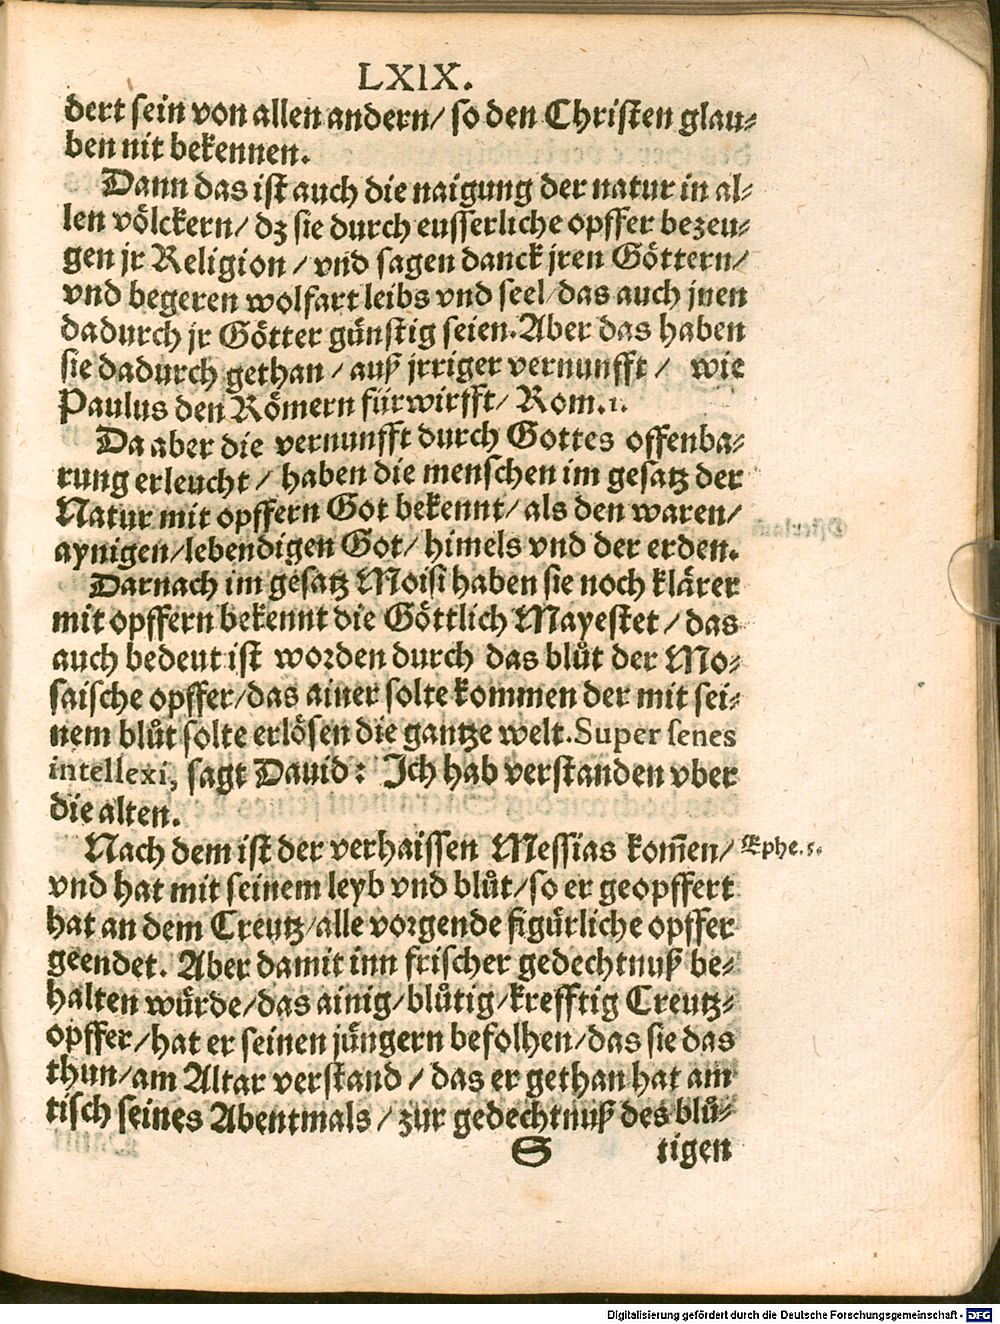 LXIX.
dert sein von allen andern/ so den Christen glau⸗
ben nit bekennen.
Dann das ist auch die naigung der natur in al⸗
len völckern/ dz sie durch eusserliche opffer bezeu⸗
gen jr Religion /vnd sagen danck jren Göttern/
vnd begeren wolfart leibs vnd seel/das auch jnen
dadurch jr Götter günstig seien. Aber das haben
sie dadurch gethan / auß jrriger vernunfft / wie
Paulus den Römern fürwirfft/ Rom. 1.
Da aber die vernunfft durch Gottes offenba⸗
rung erleucht / haben die menschen im gesatz der
Natur mit opffern Got bekennt/ als den waren/
aynigen/lebendigen Got/ himels vnd der erden.
Darnach im gesatz Moisi haben sie noch klärer
mit opffern bekennt die Göttlich Mayestet / das
auch bedeut ist worden durch das blůt der Mo⸗
saische opffer/das ainer solte kommen der mit sei⸗
nem blůt solte erlösen die gantze welt. Super senes
intellexi, sagt Dauid: Ich hab verstanden vber
die alten.
Nach dem ist der verhaissen Messias kom̃en/ Ephe. 5.
vnd hat mit seinem leyb vnd blůt/so er geopffert
hat an dem Creutz/alle vorgende figürliche opffer
geendet. Aber damit inn frischer gedechtnuß be⸗
halten würde/das ainig/blůtig/krefftig Creutz⸗
opffer/hat er seinen jüngern befolhen/das sie das
thun/am Altar verstand / das er gethan hat am
tisch seines Abentmals / zur gedechtnuß des blů⸗
S tigen
Digitalisierung gefördert durch die Deutsche Forschungsgemeinschaft - DFG